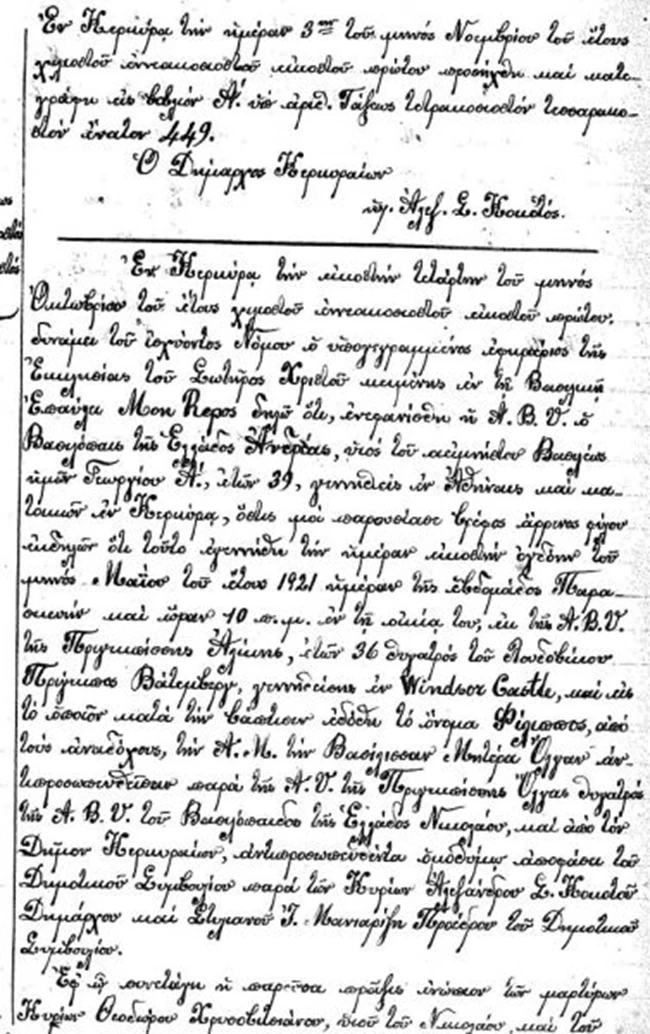 Ἐν Κερκύρᾳ τὴν ἡμέραν 3ην τοῦ μηνός Νοεμβρίου τοῦ ἔτους
χιλιοστοῦ ἐννεακοσιοστοῦ εἰκοστοῦ πρώτου προσήχθη καὶ κατε-
γράφη εἰς βιβλίον Α΄. ὑπ ἀριθ. Τάξεως τετρακοσιοστόν τεσσαρακο-
στόν ἔνατον 449.
Ὁ Δήμαρχος Κερκυραίων
ὑπ. Ἀλεξ. Σ. Κοκοτός.
Ἐν Κερκύρᾳ τὴν εἰκοστήν τετάρτην τοῦ μηνός
Ὀκτωβρίου τοῦ ἔτους χιλιοστοῦ ἐννεακοσιοστοῦ εἰκοστοῦ πρώτου.
δυνάμει τοῦ ἰσχύοντος Νόμου ὁ ὑπογεγραμμένος ἐφημέριος τῆς
Ἐκκλησίας τοῦ Σωτῆρος Χριστοῦ κειμένης ἐν τῇ Βασιλικῇ
Ἐπαύλει Mon Repos δηλῶ ὅτι, ἐνεφανίσθη ἡ Α. Β. Υ. ὁ
Βασιλόπαις τῆς Ἑλλάδος Ἀνδρέας, υἱος τοῦ ἀειμνήστου Βασιλέως
ἡμῶν Γεωργίου Α΄., ἐτῶν 39, γεννηθείς ἐν Ἀθήναις καὶ κα-
τοικῶν ἐν Κερκύρᾳ, ὅστις μοί παρουσίασε βρέφος ἄρρενος φύλου
ἐκδηλῶν ὅτι τοῦτο ἐγεννήθη τὴν ἡμέραν εἰκοστήν ὀγδόην τοῦ
μηνός Μαΐου τοῦ ἔτους 1921 ἡμέραν τῆς ἑβδομάδος Παρα-
σκευήν καὶ ὥραν 10 π.μ. ἐν τῇ οἰκίᾳ του, ἐκ τῆς Α.Β.Υ.
τῆς Πριγκιπίσσης Ἀλίκης, ἐτῶν 36 θυγατρός τοῦ Λουδοβίκου
Πρίγκιπος Βάτεμβεργ, γεννηθείσης ἐν Windsor Castle, καὶ εἰς
τὸ ὁποῖον κατά τὴν βάπτισιν ἐδόθη τὸ ὄνομα Φίλιππος, ἀπό
τούς ἀναδόχους, τὴν Α. Μ. τὴν Βασίλισσαν Μητέρα Ὄλγαν ἀν-
τιπροσωπευθεῖσαν παρά τῆς Α. Υ. τῆς Πριγκιπίσσης Ὄλγας θυγατρός
τῆς Α. Β. Υ. τοῦ Βασιλόπαιδος τῆς Ἑλλάδος Νικολάου, καὶ ἀπό τὸν
Δῆμον Κερκυραίων, ἀντιπροσωπευθέντα ὁμοθύμῳ ἀποφάσει τοῦ
Δημοτικοῦ Συμβουλίου παρά τῶν Κυρίων Ἀλεξάνδρου Σ. Κοκοτοῦ
Δημάρχου καὶ Στυλιανοῦ Ἰ. Μανιαρίζη Προέδρου τοῦ Δημοτικοῦ
Συμβουλίου.
Ἐφ ᾧ συνετάγη ἡ παροῦσα πρᾶξις ἐνώπιον τῶν μαρτύρων
Κυρίων Θεοδώρου, υἱοῦ τοῦ Νικολάου καὶ τοῦ